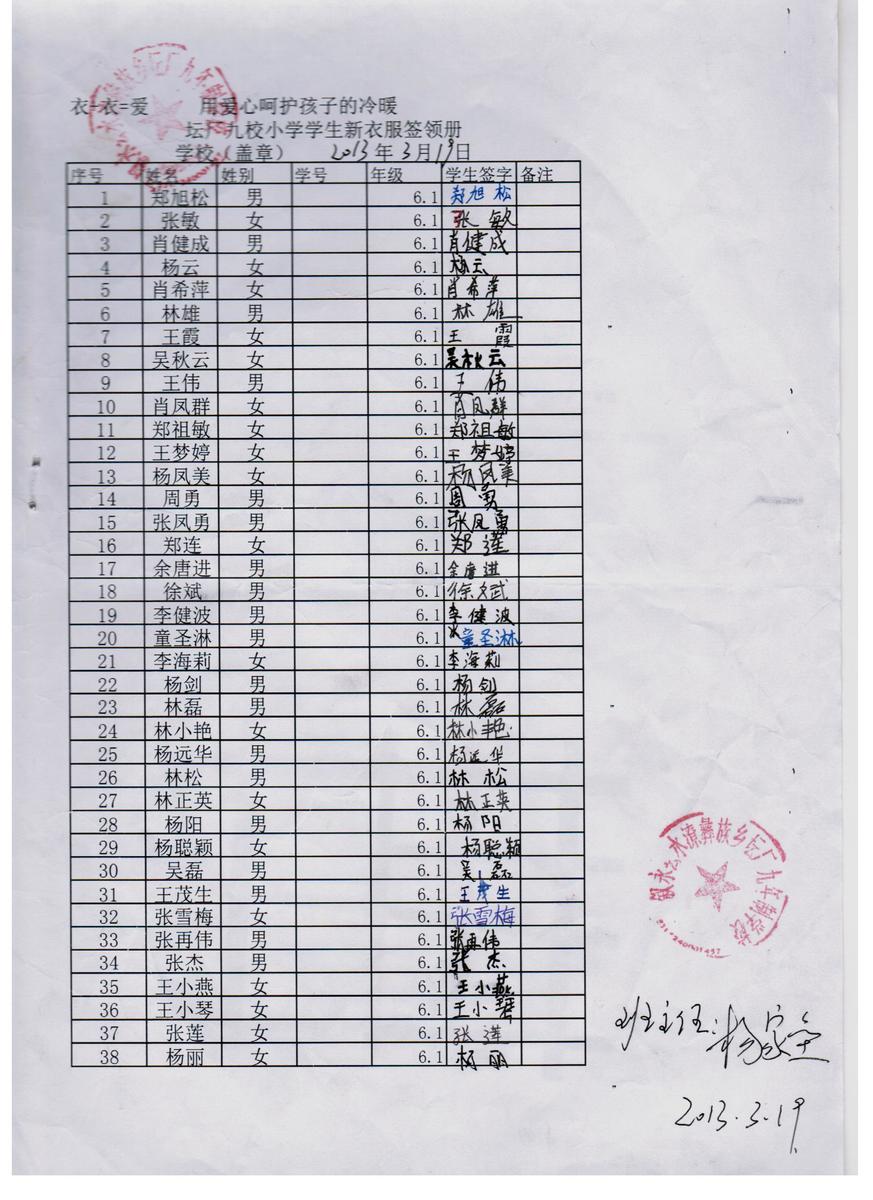 衣+衣=爱 用爱心呵护孩子的冷暖
坛厂九校小学学生新衣服签领册
学校（盖章） 2013年3月19日
序号 姓名 姓别 学号 年级 学生签字 备注
1 郑旭松 男 6.1 郑旭松
2 张敏 女 6.1 张敏
3 肖健成 男 6.1 肖健成
4 杨云 女 6.1 杨云
5 肖希萍 女 6.1 肖希萍
6 林雄 男 6.1 林雄
7 王霞 女 6.1 王霞
8 吴秋云 女 6.1 吴秋云
9 王伟 男 6.1 王伟
10 肖凤群 女 6.1 肖凤群
11 郑祖敏 女 6.1 郑祖敏
12 王梦婷 女 6.1 王梦婷
13 杨凤美 女 6.1 杨凤美
14 周勇 男 6.1 周勇
15 张凤勇 男 6.1 张凤勇
16 郑连 女 6.1 郑莲
17 余唐进 男 6.1 余唐进
18 徐斌 男 6.1 徐斌
19 李健波 男 6.1 李健波
20 童圣淋 男 6.1 童圣淋
21 李海莉 女 6.1 李海莉
22 杨剑 男 6.1 杨剑
23 林磊 男 6.1 林磊
24 林小艳 女 6.1 林小艳
25 杨远华 男 6.1 杨远华
26 林松 男 6.1 林松
27 林正英 女 6.1 林正英
28 杨阳 男 6.1 杨阳
29 杨聪颖 女 6.1 杨聪颖
30 吴磊 男 6.1 吴磊
31 王茂生 男 6.1 王茂生
32 张雪梅 女 6.1 张雪梅
33 张再伟 男 6.1 张再伟
34 张杰 男 6.1 张杰
35 王小燕 女 6.1 王小燕
36 王小琴 女 6.1 王小琴
37 张莲 女 6.1 张莲
38 杨丽 女 6.1 杨丽
叙永县水潦彝族乡坛厂九年制学校
班主任：杨家金
2013.3.19